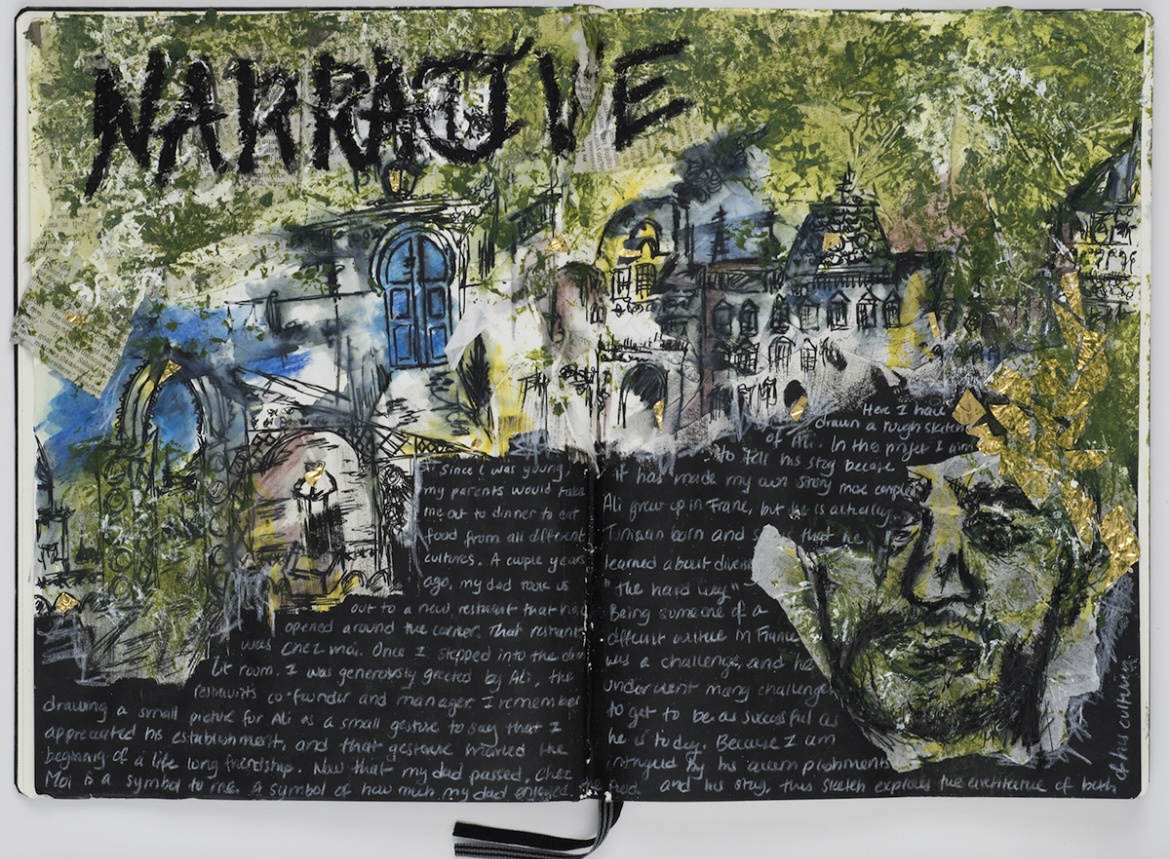 NARRATIVE
since I was young,
my parents would take
me out to dinner to eat
food from all different
cultures. A couple years
ago, my dad took us
out to a new restuant that had
opened around the corner. That restuant
was Chez moi. Once I stepped into the dim
lit room. I was generously greeted by Ali, the
restaunts co-founder and manager. I remember
drawing a small picture for Ali as a small gesture to say that I
appreciated his establishment, and that gesture marked the
beginning of a life long friendship. Now that my dad passed, Chez
Moi is a symbol to me. A symbol of how much my dad enjoyed the
Here I have
drawn a rough sketch
of Ali. In this project I aim
to tell his stoy becase
it has made my own story more complex
Ali grew up in France, but he is actually
Tunisian born and that he
learned about
"the hard way"
Being someone of a
different culture in France
was a challenge, and he
underwent many challenges
to get to be as successful as
he is today. Because I am
intrigued by his accomplishments
and his stoy, this sketch explores the architecture of both
of his cultures